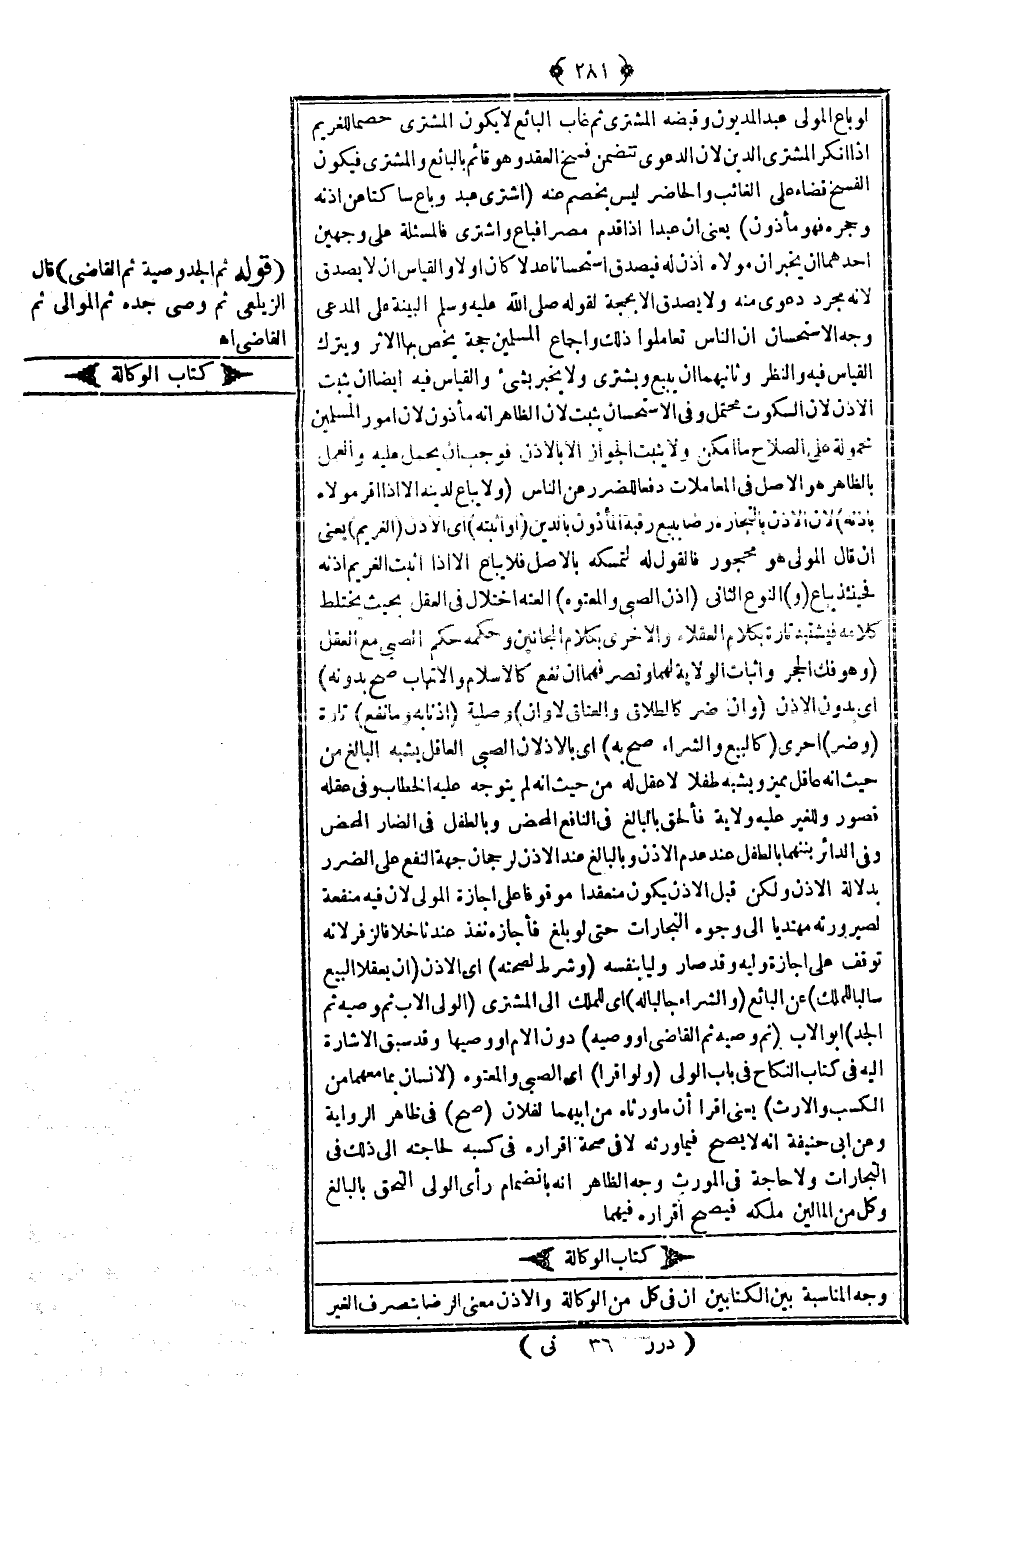 ﴿ ٢٨١ ﴾
او باع المولى عبد المديون وقبضه المشترى ثم غاب البائع لا يكون المشترى خصما للغريم
اذا انكر المشترى الدين لان الدعوى تتضمن فسخ العقد وهو قائم بالبائع والمشترى فيكون
الفسخ قضاء على الغائب والحاضر ليس بخصم عنه (اشترى عبد وباع ساكتا عن اذنه
وحجره فهو مأذون) يعنى ان عبدا اذا قدم مصرا فباع واشترى فالمسئلة على وجهين
احدهما ان يخبر ان مولاه اذن له فيصدق استحسانا عدلا كان اولا والقياس ان لا يصدق
لانه مجرد دعوى منه ولا يصدق الا بحجة لقوله صلى الله عليه وسلم البينة على المدعى
وجه الاستحسان ان الناس تعاملوا ذلك واجماع المسلمين حجة يخص بها الاثر ويترك
القياس فيه والنظر وثانيهما ان يبيع ويشترى ولا يخبر بشئ والقياس فيه ايضا ان يثبت
الاذن لان السكوت محتمل وفى الاستحسان يثبت لان الظاهر انه مأذون لان امور المسلمين
محمولة على الصلاح ما امكن ولا يثبت الجواز الا بالاذن فوجب ان يحمل عليه والعمل
بالظاهر هو الاصل فى المعاملات دفعا للضرر عن الناس (ولا يباع لدينه الا اذا اقر مولاه
باذنه) لان الاذن بالتجارة رضا ببيع رقبة المأذون بالدين (او اثبته) اى الاذن (الغريم) يعنى
ان قال المولى هو محجور فالقول له لتمسكه بالاصل فلا يباع الا اذا اثبت الغريم اذنه
فحينئذ يباع (و) النوع الثانى (اذن الصبى والمعتوه) العته اختلال فى العقل بحيث يختلط
كلامه فيشتبه تارة بكلام العقلاء والاخرى بكلام المجانين وحكمه حكم الصبى مع العقل
(وهو فك الحجر واثبات الولاية لهما وتصرفهما ان نفع كالاسلام والاتهاب صح بدونه)
اى بدون الاذن (وان ضر كالطلاق والعتاق لا وان) وصلية (اذنا به وما نفع) تارة
(وضر) اخرى (كالبيع والشراء صح به) اى بالاذن لان الصبى العاقل يشبه البالغ من
حيث انه عاقل مميز ويشبه طفلا لا عقل له من حيث انه لم يتوجه عليه الخطاب وفى عقله
قصور وللغير عليه ولاية فألحق بالبالغ فى النافع المحض وبالطفل فى الضار المحض
وفى الدائر بينهما بالطفل عند عدم الاذن وبالبالغ عند الاذن لرجحان جهة النفع على الضرر
بدلالة الاذن ولكن قبل الاذن يكون منعقدا موقوفا على اجازة المولى لان فيه منفعة
لصيرورته مهتديا الى وجوه التجارات حتى لو بلغ فأجازه نفذ عندنا خلافا لزفر لانه
توقف على اجازة وليه وقد صار وليا بنفسه (وشرط لصحته) اى الاذن (ان يعقلا البيع
سالبا للملك) عن البائع (والشراء جالبا له) اى للملك الى المشترى (الولى الاب ثم وصيه ثم
الجد) ابو الاب (ثم وصيه ثم القاضى او وصيه) دون الام او وصيها وقد سبق الاشارة
اليه فى كتاب النكاح فى باب الولى (ولو اقرا) اى الصبى والمعتوه (لانسان بما معهما من
الكسب والارث) يعنى اقرا أن ما ورثاه من ابيهما لفلان (صح) فى ظاهر الرواية
وعن ابى حنيفة انه لا يصح فيما ورثه لان صحة اقراره فى كسبه لحاجته الى ذلك فى
التجارات ولا حاجة فى المورث وجه الظاهر انه بانضمام رأى الولى التحق بالبالغ
وكل من المالين ملكه فيصح اقراره فيهما
كتاب الوكالة
وجه المناسبة بين الكتابين ان فى كل من الوكالة والاذن معنى الرضا بتصرف الغير
( درر ٣٦ نى )
(قوله ثم الجد وصية ثم القاضى) قال
الزيلعى ثم وصى جده ثم الموالى ثم
القاضى اه
كتاب الوكالة